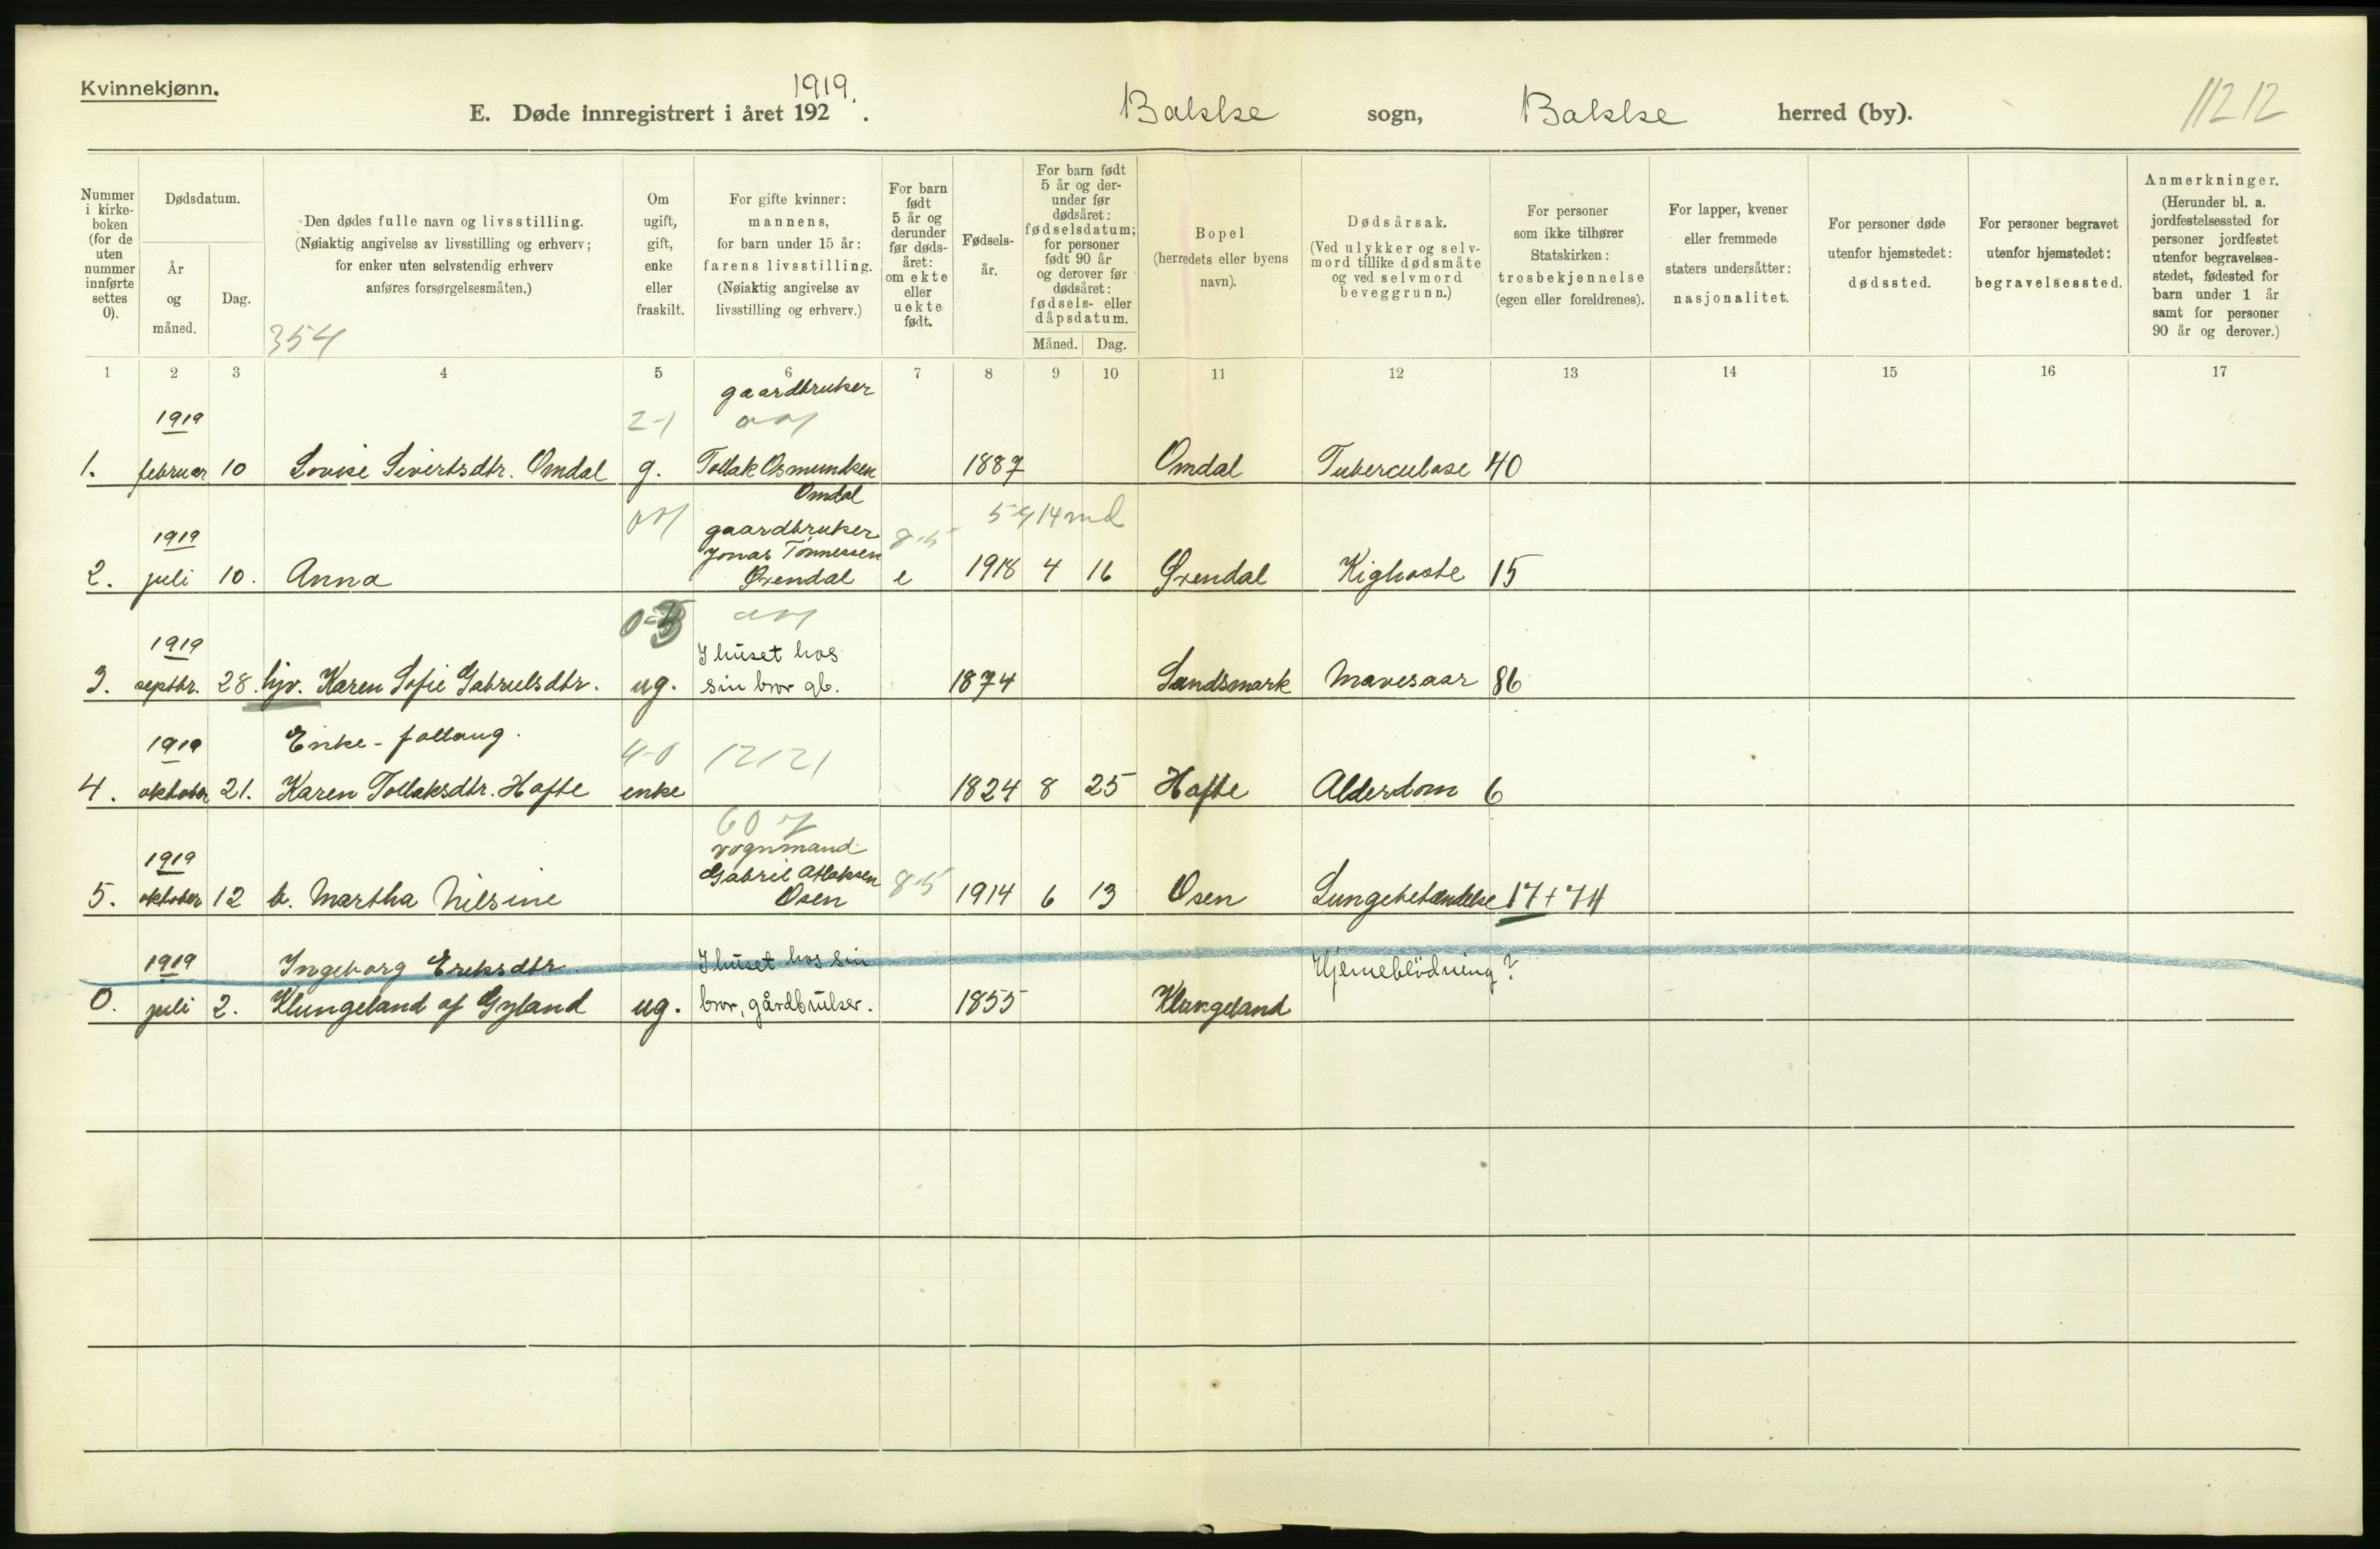 Kvinnekjønn.
1919.
E. Døde innregistrert i året 192 .
Bakke sogn, Bakke herred (by).
1212
Nummer i kirke- boken (for de uten nummer innførte settes 0).
Dødsdatum.
År og måned.
Dag.
Den dødes fulle navn og livsstilling.
(Nøiaktig angivelse av livsstilling og erhverv;
for enker uten selvstendig erhverv
anføres forsørgelsesmåten.)
354
Om ugift, gift, enke eller fraskilt.
For gifte kvinner:
mannens,
for barn under 15 år:
farens livsstilling.
(Nøiaktig angivelse av
livsstilling og erhverv.)
For barn født 5 år og derunder før døds- året: om ekte eller uekte født.
Fødsels- år.
For barn født 5 år og der- under før dødsåret: fødselsdatum; for personer født 90 år og derover før dødsåret: fødsels- eller dåpsdatum.
Måned. Dag.
Bopel
(herredets eller byens
navn).
Dødsårsak.
(Ved ulykker og selv-
mord tillike dødsmåte
og ved selvmord
beveggrunn.)
For personer
som ikke tilhører
Statskirken:
trosbekjennelse
(egen eller foreldrenes).
For lapper, kvener
eller fremmede
staters undersåtter:
nasjonalitet.
For personer døde
utenfor hjemstedet:
dødssted.
For personer begravet
utenfor hjemstedet:
begravelsessted.
Anmerkninger.
(Herunder bl. a.
jordfestelsessted for
personer jordfestet
utenfor begravelses-
stedet, fødested for
barn under 1 år
samt for personer
90 år og derover.)
1 2 3 4 5 6 7 8 9 10 11 12 13 14 15 16 17
gaardbruker
1919 2-1
1. februar 10 Lovise Sivertsdtr. Omdal g. Tollak Osmundsen 1887 Omdal Tuberculose 40
Omdal
1919 gaardbruker
Jonas Tønnessen
2. juli 10. Anna Øvendal e 1918 4 16 Øvendal Kighoste 15
1919 I huset hos
3. septbr. 28. hjv. Karen Sofie Gabrielsdtr. ug. sin bror gb. 1874 Sandsmark Mavesaar 86
1919 Enke - follaug. 4-0
4. oktober 21. Karen Tollaksdtr. Hafte enke 1824 8 25 Hafte Alderdom 6
1919 vognmand
Gabriel
5. oktober 12 b. Martha Nilsine Osen 8-5 1914 6 13 Osen Lungebetændelse 17 + 74
1919 Ingeborg Eriksdtr. I huset hos sin Hjerneblödning?
0. juli 2. Klungeland af Gyland ug. bror, gårdbruker. 1855 Klungeland